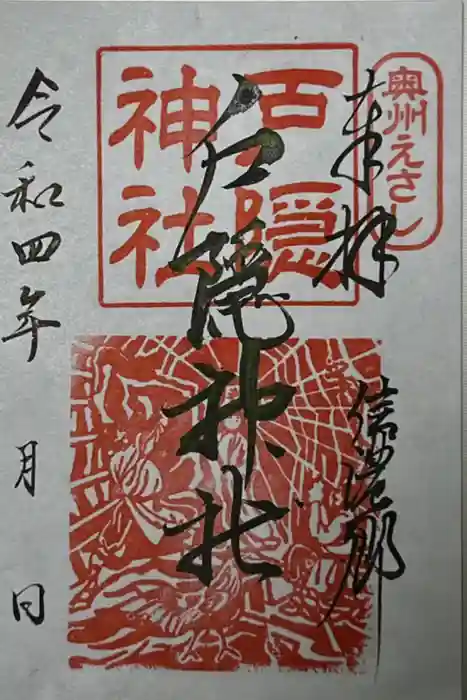 奥州えさし
奉拝
戸隠
神社
戸隠神社
令和四年 月 日